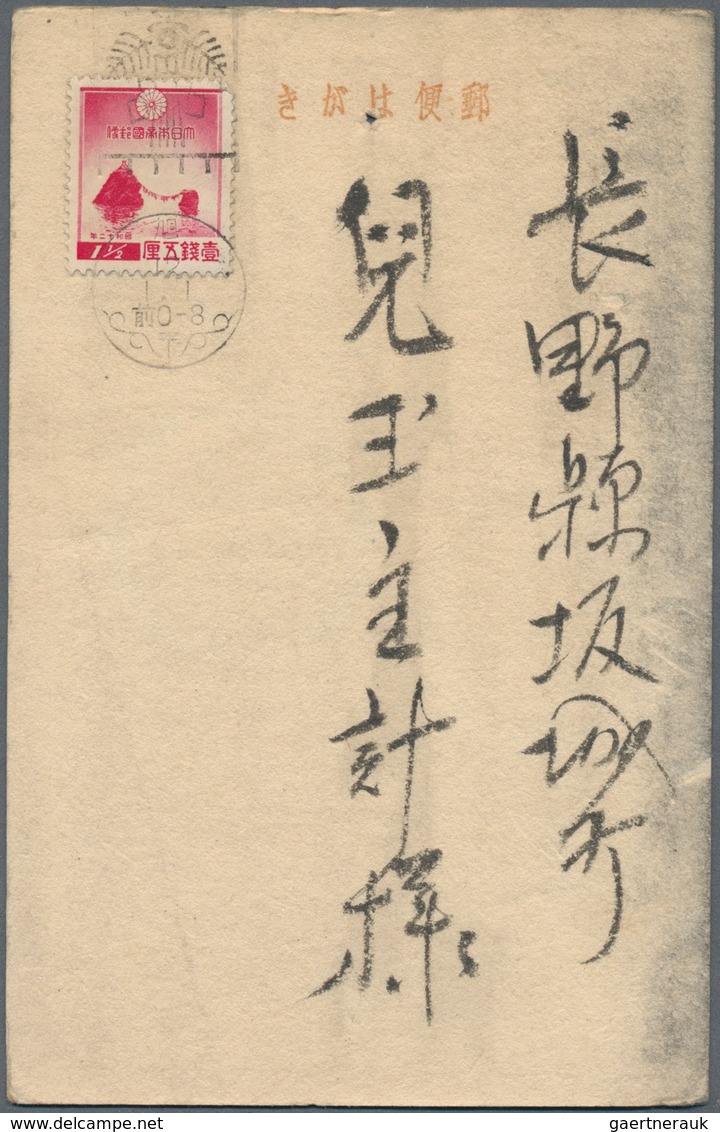 郵便はがき
大日本帝國郵便
昭和十二年
壹錢五厘
1½
12
1.1
前0-8
長野縣坂城町
兒玉主計様
gaertnerauk